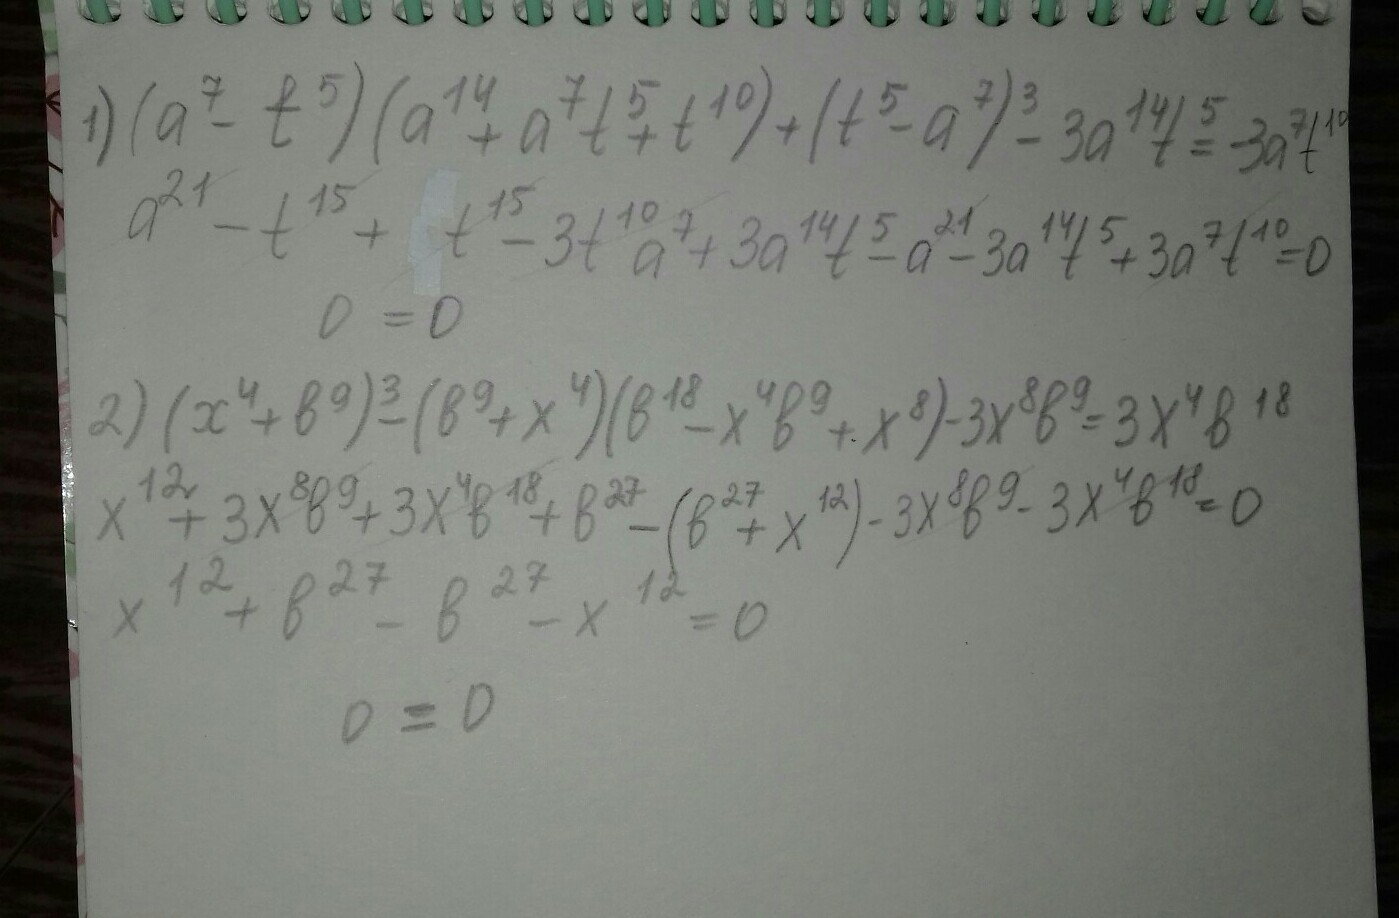 1) (a⁷ - t⁵)(a¹⁴ + a⁷t⁵ + t¹⁰) + (t⁵ - a⁷)³ - 3a¹⁴t⁵ = -3a⁷t¹⁰
a²¹ - t¹⁵ + t¹⁵ - 3t¹⁰a⁷ + 3a¹⁴t⁵ - a²¹ - 3a¹⁴t⁵ + 3a⁷t¹⁰ = 0
0 = 0
2) (x⁴ + в⁹)³ - (в⁹ + x⁴)(в¹⁸ - x⁴в⁹ + x⁸) - 3x⁸в⁹ = 3x⁴в¹⁸
x¹² + 3x⁸в⁹ + 3x⁴в¹⁸ + в²⁷ - (в²⁷ + x¹²) - 3x⁸в⁹ - 3x⁴в¹⁸ = 0
x¹² + в²⁷ - в²⁷ - x¹² = 0
0 = 0